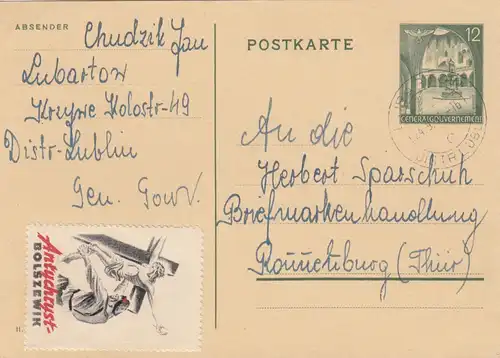 ABSENDER
Chudzik Jan
Lubartow
Krzywe Kolostr-49
Distr-Lublin
Gen. Gouv.
POSTKARTE
12
GENERALGOUVERNEMENT
An die
Herbert Sparschuh
Briefmarkenhandlung
Ronneburg (Thür)
Antychryst-
BOLSZEWIK